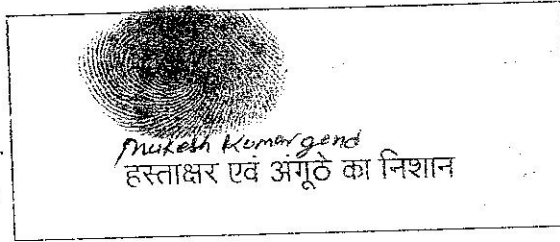 Mukesh Kumar gend
हस्ताक्षर एवं अंगूठे का निशान